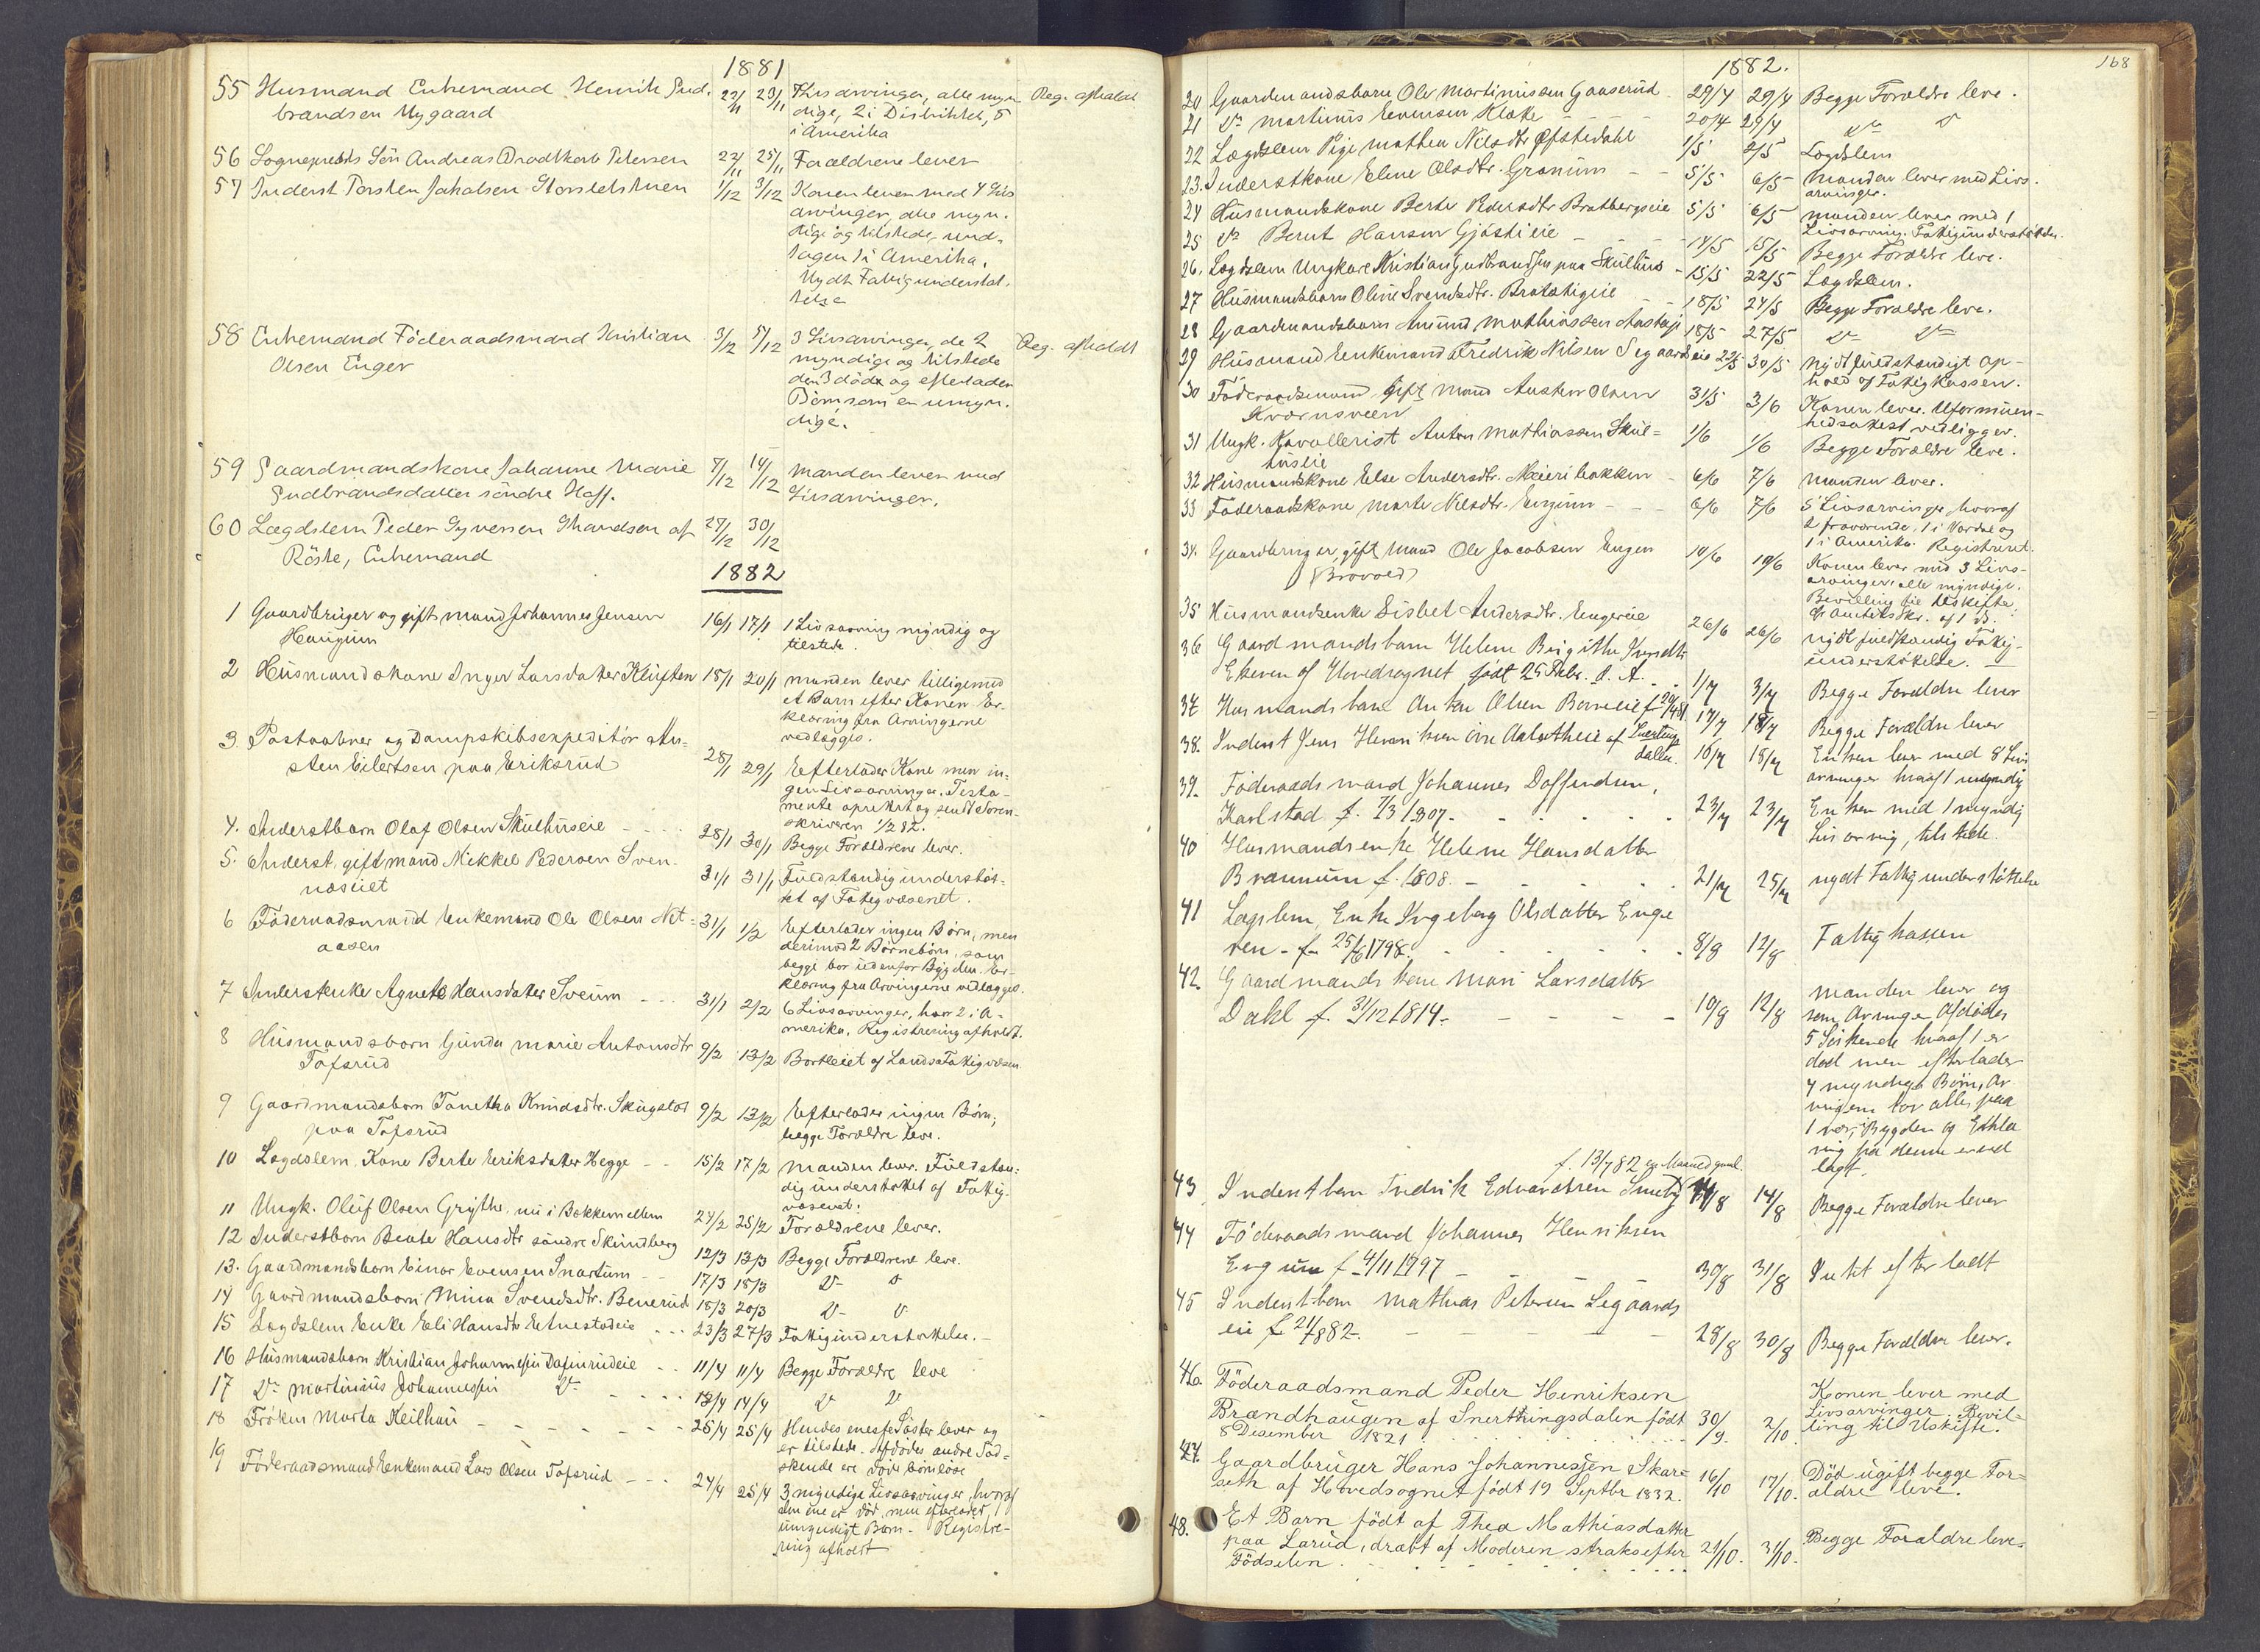 1881
55 Husmand Enkemand Henrik Gud- 22/11 23/11 7 Livsarvinger, alle myn- Reg. afholdt
brandsen Nygaard dige, 2 i Distriktet, 5
i Amerika
56 Sogneprests Søn Andreas Bradtkorb Petersen 22/11 25/11 Forældrene lever
57 Inderst Torsten Jakobsen 1/12 3/12 Konen lever med 4 Livs
arvinger, alle myn-
dige og tilstede, und-
tagen 1 i Amerika.
Nydt Fattigunderstøt-
telse
58 Enkemand Föderaadsmand Kristian 3/12 5/12 3 Livsarvinger, de 2 Reg. afholdt
Olsen Enger myndige og tilstede
den 3 död og efterladen
Börn som er umyn-
dige.
59 Gaardmandskone Johanne Marie 7/12 14/12 Manden lever med
Gudbrandsdatter söndre Hoff. Livsarvinger.
60 Lægdslem Peder Syversen af 27/12 30/12
Röste, Enkemand
1882
1 Gaardbruger og gift mand Johannes Jensen 16/1 17/1 1 Livsarving myndig og
Haugum tilstede.
2 Husmandskone Inger Larsdatter Kluften 18/1 20/1 manden lever tilligemed
et Barn efter Konen Er-
klæring fra Arvingerne
vedlægges.
3 Postaabner og Dampskibsexpeditör Au-
sten Eilertsen paa Eriksrud 28/1 29/1 Efterlader Kone men in-
gen Livsarvinger. Testa-
mente oprettet og sendt Soren-
skriveren 1/2 82.
4. Inderstbarn Olaf Olsen Skulhuseie 28/1 30/1 Begge Forældrene lever.
5. Inderst, gift mand Mikkel Pedersen Sven-
næsiiet 31/1 31/1 Fuldstændig understöt-
tet af Fattigvæsenet.
6 Föderaadsmand Enkemand Ole Olsen Net- 31/1 1/2 Efterlader ingen Börn, men
aasen derimod 2 Börnebörn, som
begge bor udenfor Bygden. Er-
klæring fra Arvingerne vedlægges.
7 Inderstenke Agnete Hansdatter Sveum 31/1 2/2 6 Livsarvinger, hvor 2 i A-
merika. Registrering afholdt.
8 Husmandsbarn Gunda Marie Antonsdtr 9/2 13/2 Bortleiet af Lands Fattigvæsen
Tofsrud
9 Gaardmandsbarn Tanetha Knudsdtr. Skugstad 9/2 13/2 Efterlader ingen Börn,
paa Tofsrud begge Forældre leve.
10 Lægdslem, Kone Berte Eriksdatter Hegge 15/2 17/2 manden lever. Fuldstæn-
dig understöttet af Fattig-
væsenet.
11 Ungk. Oluf Olsen Grythe, nu i Bakkemellem 24/2 25/2 Forældrene lever.
12 Inderstbarn Beate Hansdtr söndre Skundberg 12/3 13/3 Begge Forældrene leve.
13. Gaardmandsbarn Einar Evensen Snartum 17/3 18/3
14 Gaardmandsbarn Mina Svendsdtr. Benerud 18/3 20/3
15 Lægdslem Enke Eli Hansdtr Eetnestadeie 23/3 27/3 Fattigunderstöttelse.
16 Husmandsbarn Kristian Johannesen Dafinrudeie 11/4 11/4 Begge Forældre leve
17 Do Martinius Johannessen Do 13/4 14/4
18 Fröken Marta Keilhau 25/4 25/4 Hendes eneste Söster lever og
er tilstede. Afdödes andre Söd-
skende ere döde börnlöse
19 Föderaadsmand Enkemand Lars Olsen Tofsrud 24/4 25/4 3 myndige Livsarvinger, hvoraf
den ene er död, men efterlader 1
umyndigt Barn. Registre-
ring afholdt
1882.
168
20 Gaardmandsbarn Ole Martiniussen Gaaserud 29/4 29/4 Begge Forældre leve.
21 Do Martinius Evensen Klake 20/4 29/4
22 Lægdslem Pige Mathea Nilsdtr Öfstedahl 1/5 2/5 Lægdslem
23. Inderstkone Eline Olsdtr. Granum 5/5 6/5 Manden lever med Livs-
arvinger.
24 Husmandskone Berte Pedersdtr Bratbergseie 5/5 6/5 manden lever med 1
Livsarving. Fattigunderstöttelse.
25 Do Bernt Hansen Gjöstieie 14/5 15/5 Begge Forældre leve.
26. Lægdslem Ungkare Kristian Gudbrandsen paa Skulhus 15/5 22/5 Lægdslem.
27 Husmandsbarn Oline Svendsdtr. Bratstigeie 18/5 24/5 Begge Forældre leve.
28 Gaardmandsbarn Amund Mathiassen 18/5 27/5
29 Husmand Enkemand Fredrik Nilsen Segaardseie 29/5 30/5 Nydt fuldstændigt op-
hold af Fattigkassen.
30 Föderaadsmand gift Mand Austen Olsen 31/5 3/6 Konen lever. Uformuen-
Kværnsveen hedsattest vedligger.
31 Ungk. Kavallerist Anton Mathiassen Skul- 1/6 1/6 Begge Forældre leve.
huseie
32 Husmandskone Else Andersdtr. Meieribakken 6/6 7/6 manden lever.
33 Föderaadskone Marte Nilsdtr. Engum 6/6 7/6 5 Livsarvinger, hvoraf
2 fraværende, 1 i Vardal og
1 i Amerika. Registreret.
34. Gaardbruger, gift Mand Ole Jacobsen Engen 10/6 10/6 Konen lever med 3 Livs-
(Brovold) arvinger, alle myndige.
Bevilling til Uskifte.
35 Husmandsenke Lisbet Andersdtr. Engereie 26/6 26/6 nydt fuldstændig Fattig-
understöttelse.
36 Gaardmandsbarn Helene Birgithe
Ekeren af Hovedsognet födt 25 Febr. d. A. 1/7 3/7 Begge Forældre lever
37 Husmandsbarn Anton Olsen 17/7 18/7 Begge Forældre lever
38. Inderst Jens Henriksen övre af Snertings
dalen. 16/7 18/7 Enken lever med 8 Livs
arvinger hvoraf 1 umyndig
39. Föderaadsmand Johannes Daffindsen,
Karlstad f. 7/3 1807. 23/7 23/7 Enken med 1 myndig
Livsarving, tilstede.
40 Husmandsenke Helene Hansdatter
Brannum f. 1808. 21/7 25/7 nydt Fattigunderstöttelse
41 Lægslem, Enke Ingeborg Olsdatter Enge
ren f. 25/6 1798. 8/8 12/8 Fattigkassen
42. Gaardmandskone Mari Larsdatter
Dahl f. 31/12 1814. 10/8 12/8 manden lever og
som Arvinge Afdödes
5 Söskende hvoraf 1 er
död men efterlader
4 myndige Börn, Ar-
vingerne bor alle paa
1 nær, i Bygden og Erklæ-
ring fra denne er ved
lagt.
f. 13/7 82 en Maaned gaml.
43 Inderstbarn Fredrik Edvardsen Smeby 11/8 14/8 Begge Forældre lever
44 Föderaadsmand Johannes Henriksen
Engum f. 4/11 1797 30/8 31/8 Intet efterladt
45 Inderstbarn Mathias Petersen Segaards
eie f. 21/7 882. 28/8 30/8 Begge Forældre lever.
46. Föderaadsmand Peder Henriksen Konen lever med
Brændhaugen af Snertingsdalen födt 30/9. 2/10. Livsarvinger. Bevil-
8 Desember 1821 ling til Uskifte.
47. Gaardbruger Hans Johannessen Skar- 16/10 17/10. Död ugift begge For-
seth af Hovedsognet födt 19 Septbr 1832. ældre leve.
48. Et Barn födt af Thea Mathiasdatter
paa Larud, dræbt af Moderen straks efter 21/10. 31/10. Begge Forældre leve.
Födselen.